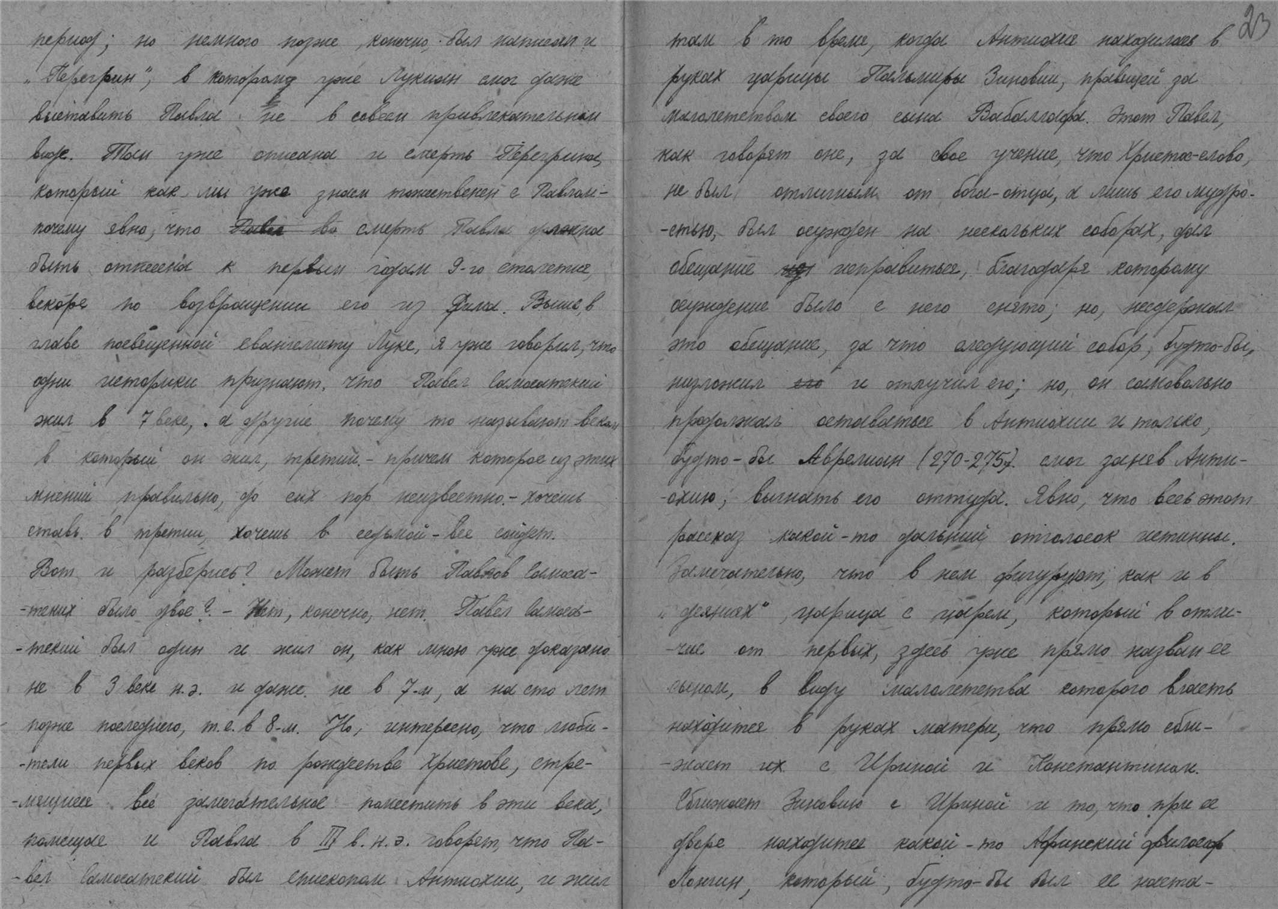 период; но немного позже, конечно, был написан и
„Перегрин", в котором уже Лукиан смог даже
выставить Павла не в совсем привлекательном
виде. Там уже описана и смерть Перегрина,
который как мы уже знаем тожественен с Павлом-
почему явно, что Павел во смерть Павла должна
быть отнесена к первым годам 9-го столетия,
вскоре по возвращении его из Рима. Выше, в
главе посвещенной евангелисту Луке, я уже говорил, что
одни историки признают, что Павел Самосатский
жил в 7 веке, а другие почему то называют веком
в который он жил, третий, - причем которое из этих
мнений правильно, до сих пор неизвестно, - хочешь
ставь в третии, хочешь в седьмой - все сойдет.
Вот и разберись? Может быть Павлов Самоса-
-тских было двое? - Нет, конечно, нет. Павел Самоса-
-тский был один и жил он, как мною уже доказано
не в 3 веке н.э. и даже не в 7-м, а на сто лет
позже последнего, т.е. в 8-м. Но, интересно, что люби-
-тели первых веков по рождестве Христове, стре-
-мящиеся всё замечательное поместить в эти века,
помещая и Павла в III в. н.э. говорят, что Па-
-вел Самосатский был епископом Антиохии, и жил
23
там в то время, когда Антиохия находилась в
руках царицы Пальмиры Зиновии, правящей за
малолетством своего сына Вабаллафа. Этот Павел,
как говорят они, за свое учение, что Христос-слово,
не был отличным от бога-отца, а лишь его мудро-
-стью, был осужден на нескольких соборах, дал
обещание исправиться, благодаря которому
осуждение было с него снято; но, несдержал
это обещание, за что следующий собор, будто-бы,
низложил его и отлучил его; но, он самовольно
продолжал оставаться в Антиохии и только,
будто-бы Аврелиан (270-275) смог заняв Анти-
-охию, выгнать его оттуда. Явно, что весь этот
рассказ какой-то дальний отголосок истины.
Замечательно, что в нем фигурируют, как и в
„деяниях", царица с царем, который в отли-
-чие от первых, здесь уже прямо назван ее
сыном, в виду малолетства которого власть
находится в руках матери, что прямо сбли-
-жает их с Ириной и Константином.
Сближает Зиновию с Ириной и то, что при ее
дворе находится какой-то Афинский философ
Лонгин, который, будто-бы был ее наста-